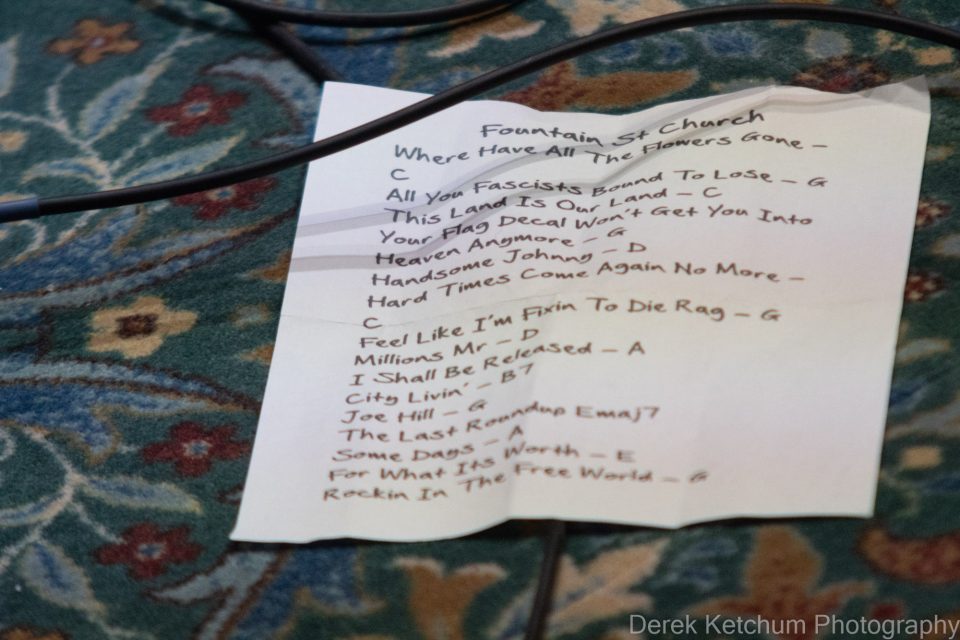 Fountain St Church
Where Have All The Flowers Gone –
C
All You Fascists Bound To Lose – G
This Land Is Our Land – C
Your Flag Decal Won't Get You Into
Heaven Anymore – G
Handsome Johnny – D
Hard Times Come Again No More –
C
Feel Like I'm Fixin To Die Rag – G
Millions Mr – D
I Shall Be Released – A
City Livin' – B7
Joe Hill – G
The Last Roundup Emaj7
Some Days – A
For What Its Worth – E
Rockin In The Free World – G
Derek Ketchum Photography